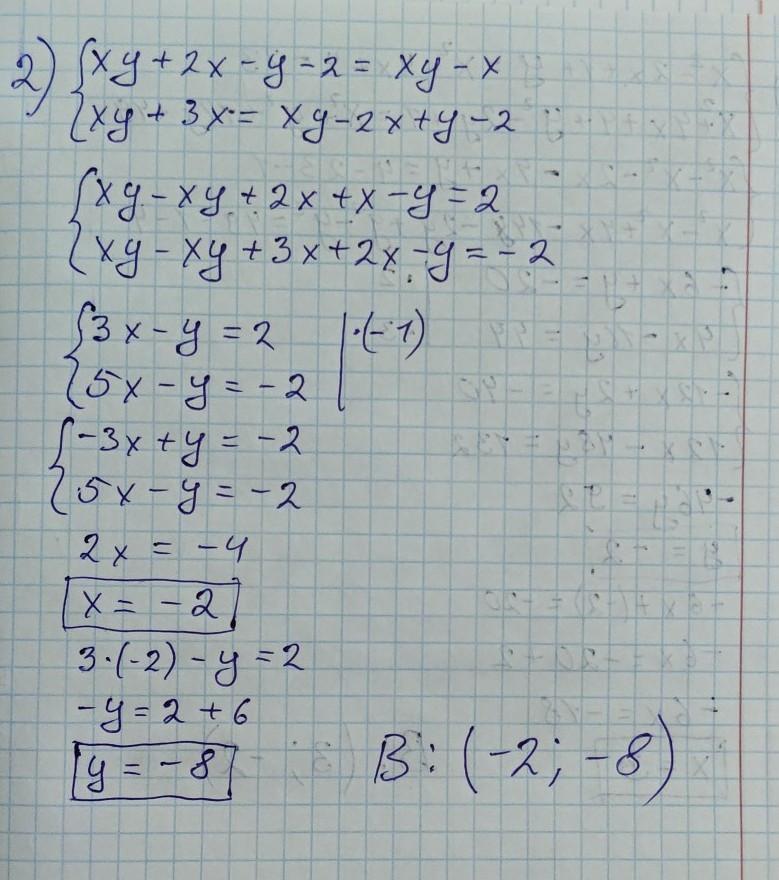 2) { xy + 2x - y - 2 = xy - x
{ xy + 3x = xy - 2x + y - 2
{ xy - xy + 2x + x - y = 2
{ xy - xy + 3x + 2x - y = -2
{ 3x - y = 2 | ·(-1)
{ 5x - y = -2
{ -3x + y = -2
{ 5x - y = -2
2x = -4
x = -2
3·(-2) - y = 2
-y = 2 + 6
y = -8
В: (-2; -8)